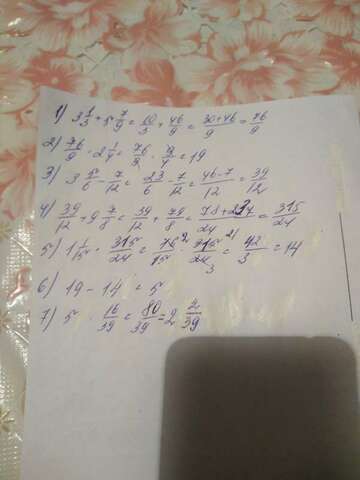 1) 3 1/3 + 5 7/9 = 10/3 + 46/9 = 30+46/9 = 76/9
2) 76/9 · 2 1/4 = 76/9 · 9/4 = 19
3) 3 5/6 - 7/12 = 23/6 - 7/12 = 46-7/12 = 39/12
4) 39/12 + 9 7/8 = 39/12 + 79/8 = 78+237/24 = 315/24
5) 1 1/15 · 315/24 = 16 2/15 · 315 21/24 3 = 42/3 = 14
6) 19 - 14 = 5
7) 5 · 16/39 = 80/39 = 2 2/39